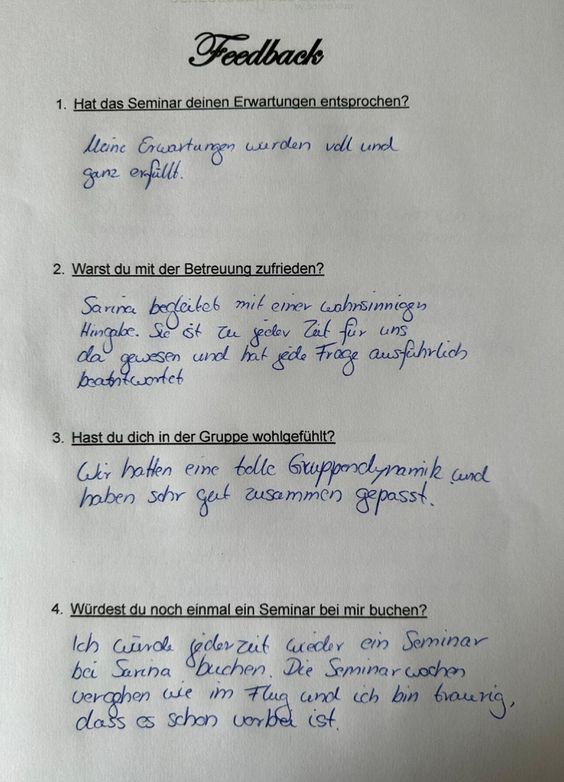 Feedback
1. Hat das Seminar deinen Erwartungen entsprochen?
Meine Erwartungen wurden voll und
ganz erfüllt.
2. Warst du mit der Betreuung zufrieden?
Sarina begleitet mit einer wahnsinnigen
Hingabe. Sie ist zu jeder Zeit für uns
da gewesen und hat jede Frage ausführlich
beantwortet
3. Hast du dich in der Gruppe wohlgefühlt?
Wir hatten eine tolle Gruppendynamik und
haben sehr gut zusammen gepasst.
4. Würdest du noch einmal ein Seminar bei mir buchen?
Ich würde jederzeit wieder ein Seminar
bei Sarina buchen. Die Seminarwochen
vergehen wie im Flug und ich bin traurig,
dass es schon vorbei ist.